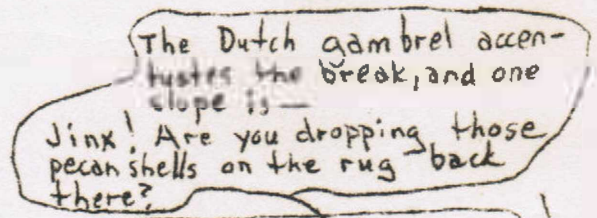 The Dutch gambrel accen-
tuates the break, and one
slope is—
Jinx! Are you dropping those
pecan shells on the rug back
there?